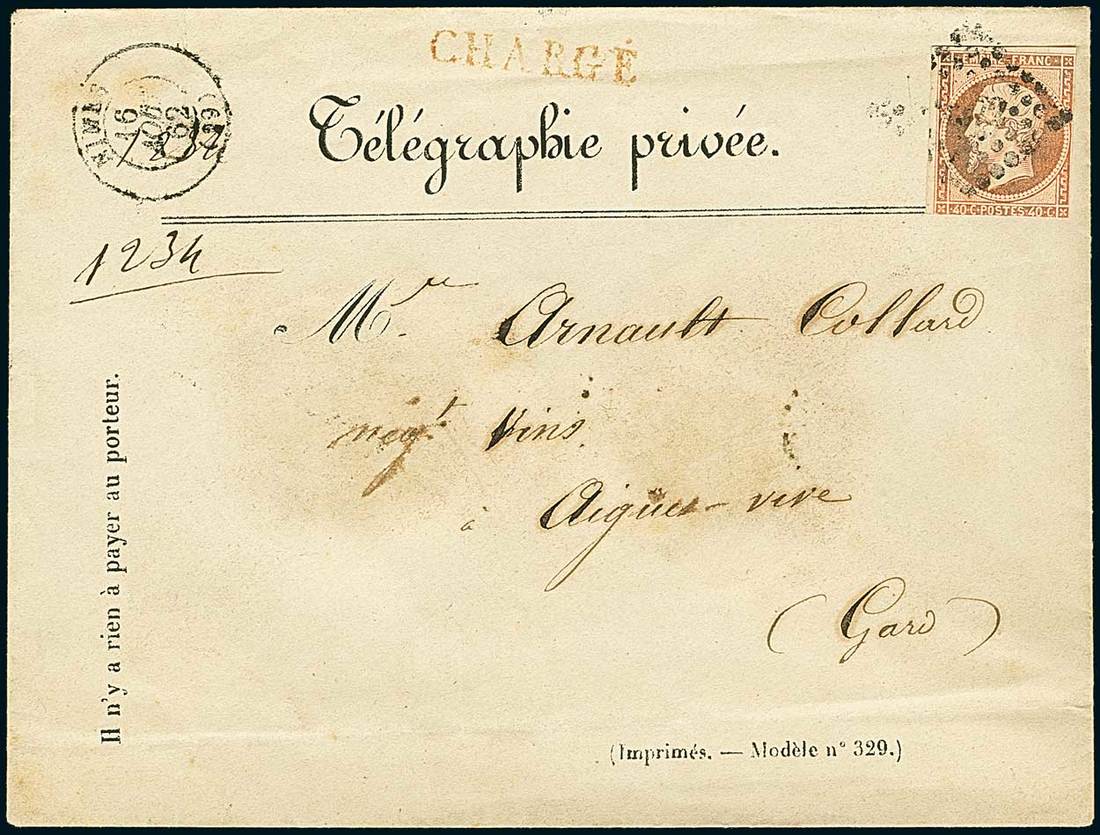 CHARGÉ
NIMES
16
AOUT
62
1234
Télégraphie privée.
EMPIRE FRANC
40·C·POSTES·40·C
1234
Mr. Arnault Collard
négt. Vins
à Aigues-vive
(Gard)
Il n'y a rien à payer au porteur.
(Imprimés. — Modèle n° 329.)